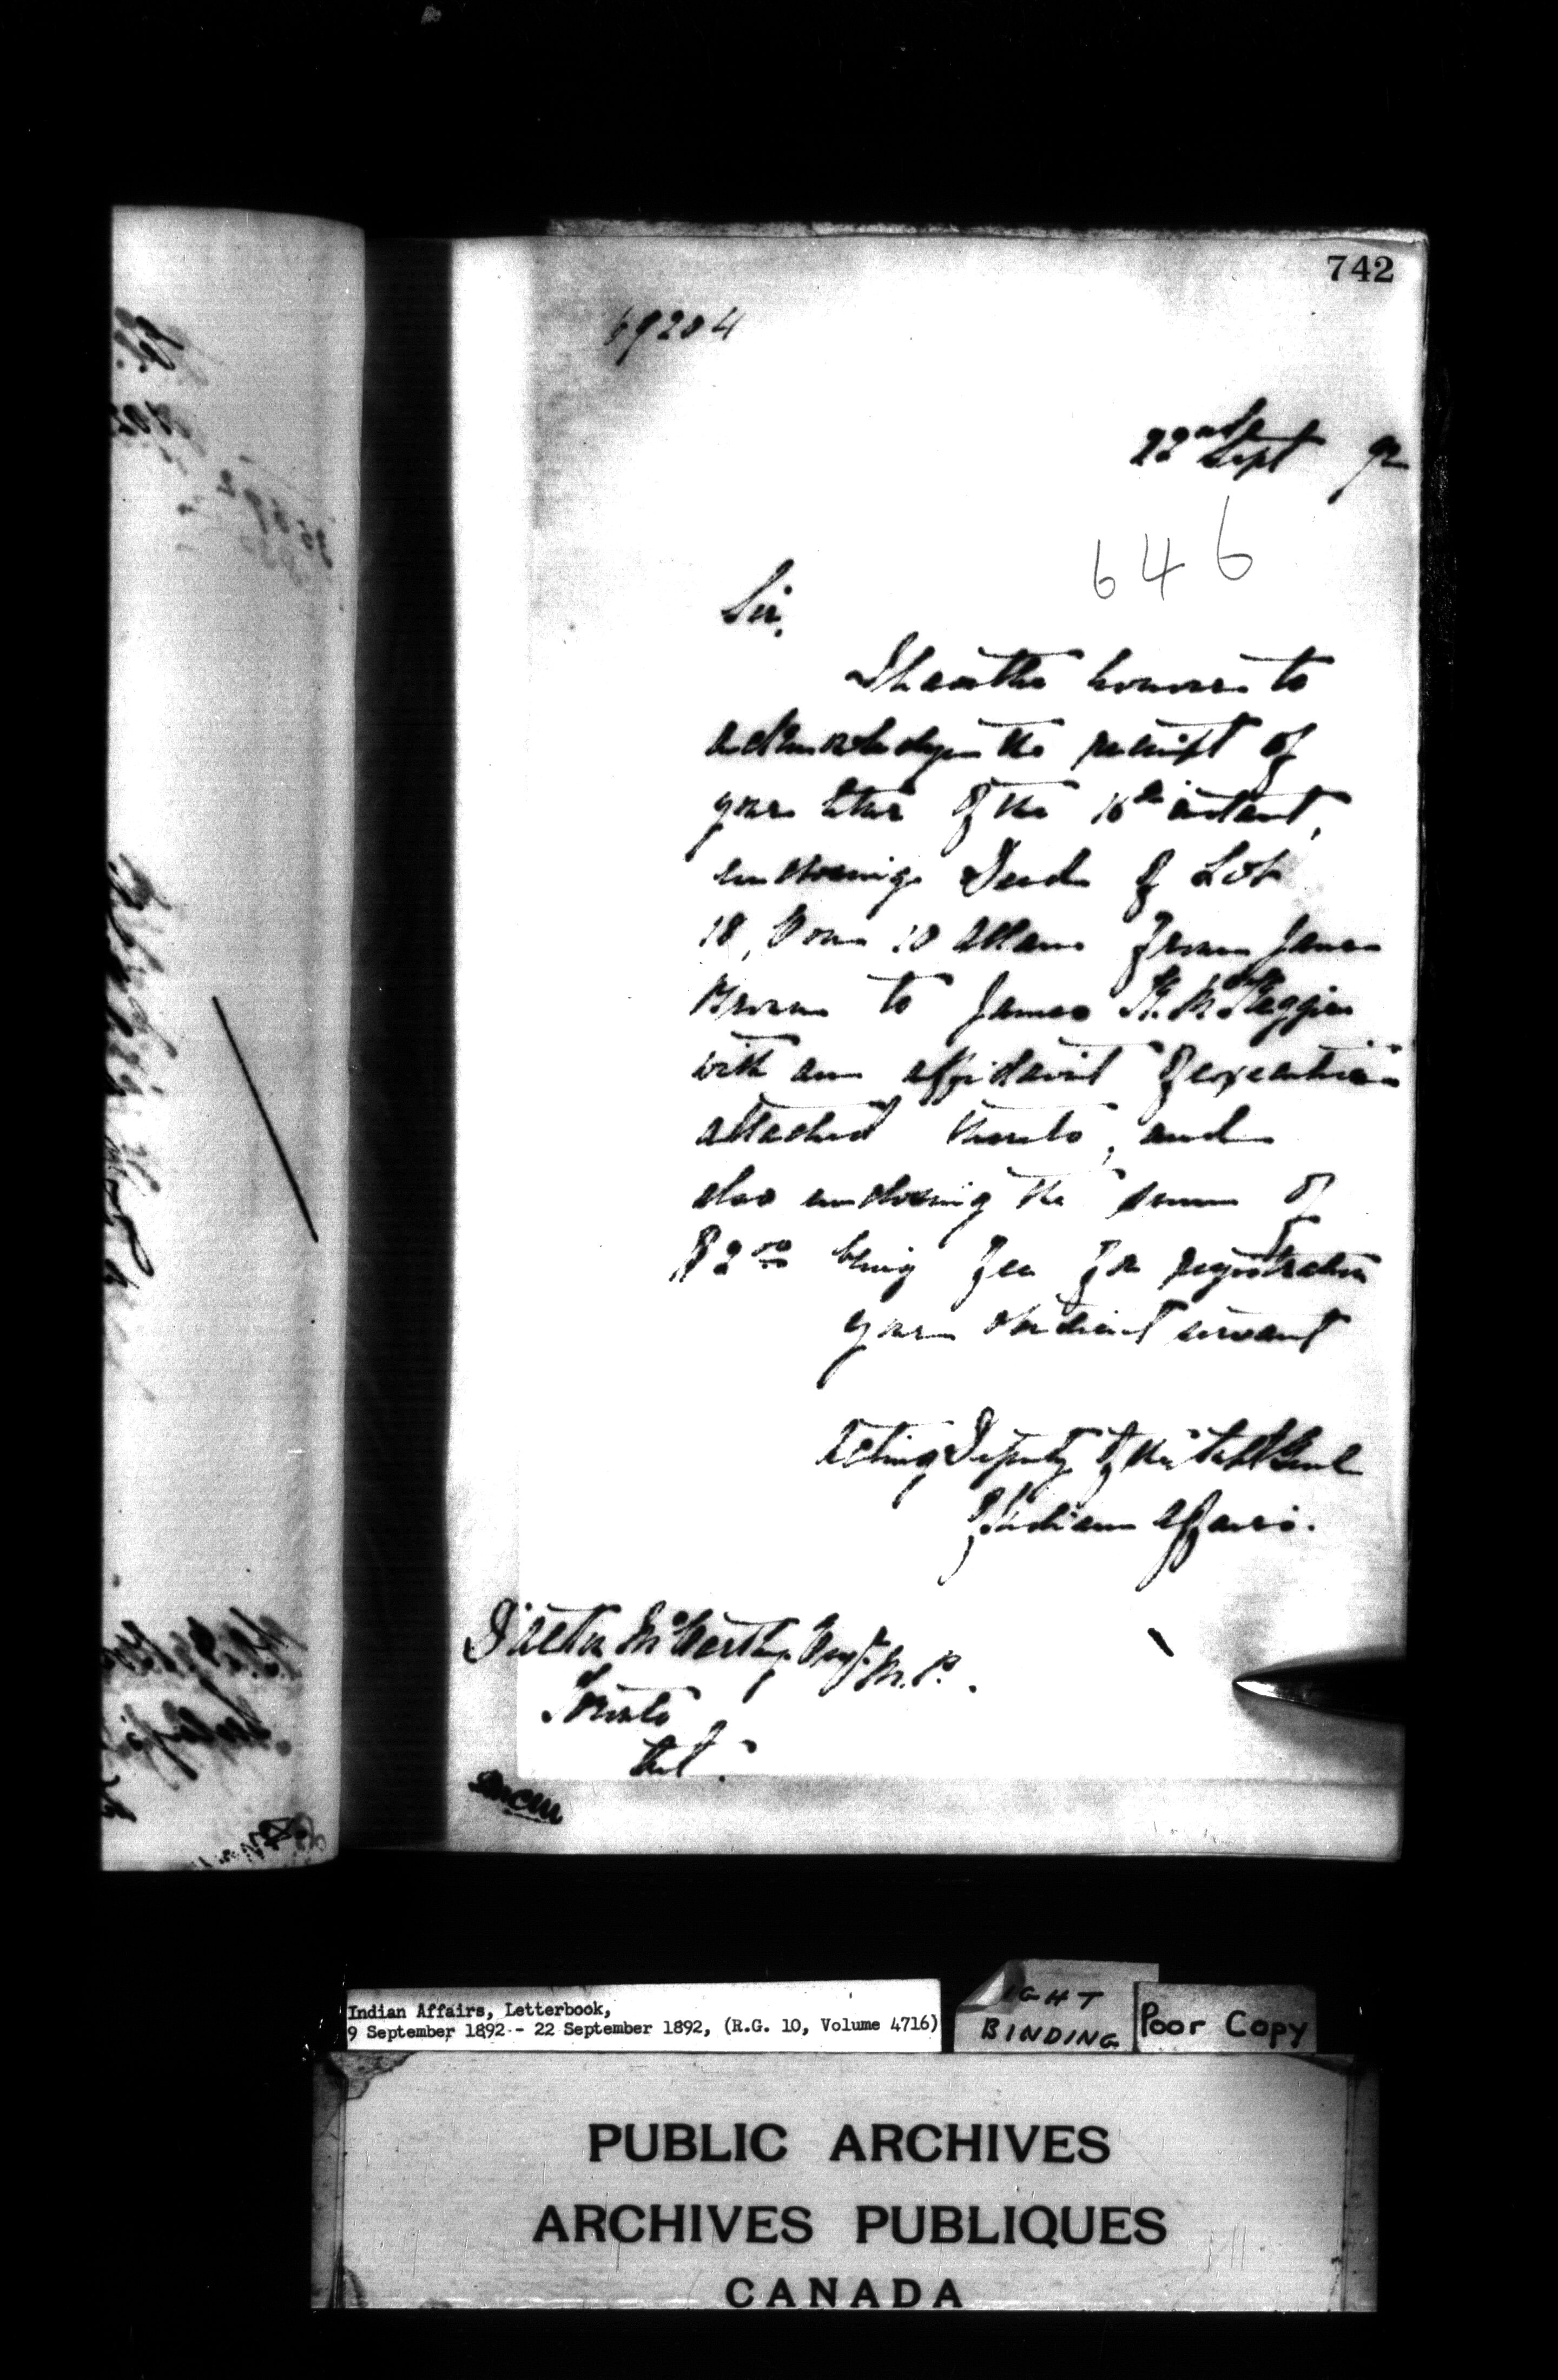 742
69204
22nd Sept 92
646
Sir,
I have the honour to
acknowledge the receipt of
your letter of the 16th instant,
enclosing Deed of Lot
18, Con 10 from James
Brown to James
with an affidavit of execution
attached thereto, and
also enclosing the sum of
$2.00 being fee for registration
Your obedient servant
Acting Deputy of the Supt Genl
of Indian Affairs.
Dalton McCarthy Esq. M.P.
Toronto
Ont.
Indian Affairs, Letterbook,
9 September 1892 - 22 September 1892, (R.G. 10, Volume 4716)
IGHT
BINDING
Poor Copy
PUBLIC ARCHIVES
ARCHIVES PUBLIQUES
CANADA